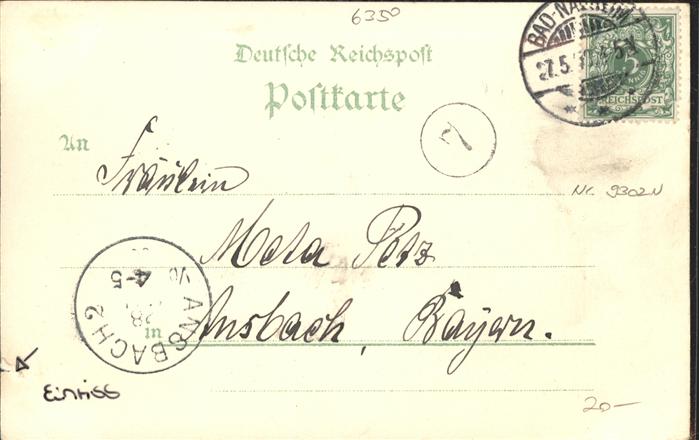 635⁰
Deutsche Reichspost
Postkarte
BAD-NAUHEIM
27.5.
5
REICHSPOST
7
An
Fräulein
Nr. 9302N
Meta Petz
in Ansbach, Bayern.
ANSBACH 2
28
4-5
Einriss
20–